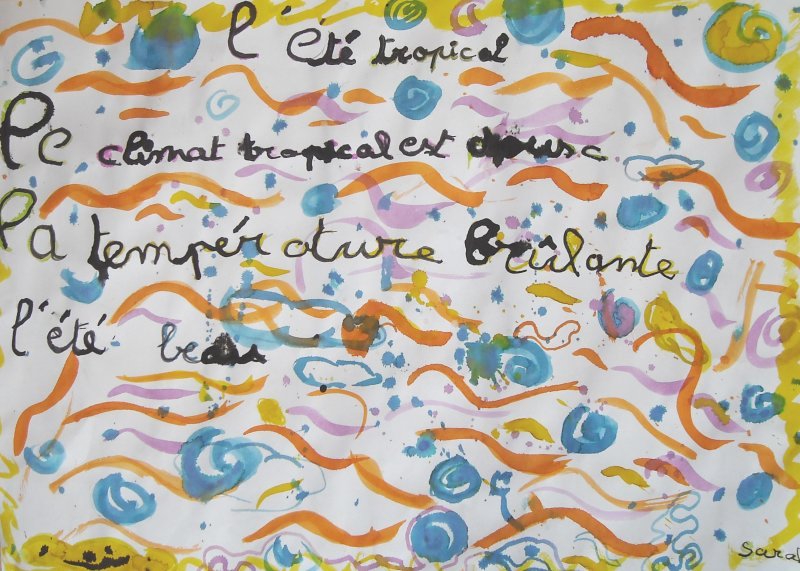 l'été tropical
Le climat tropical est
la température Brûlante
l'été beau
Sarah